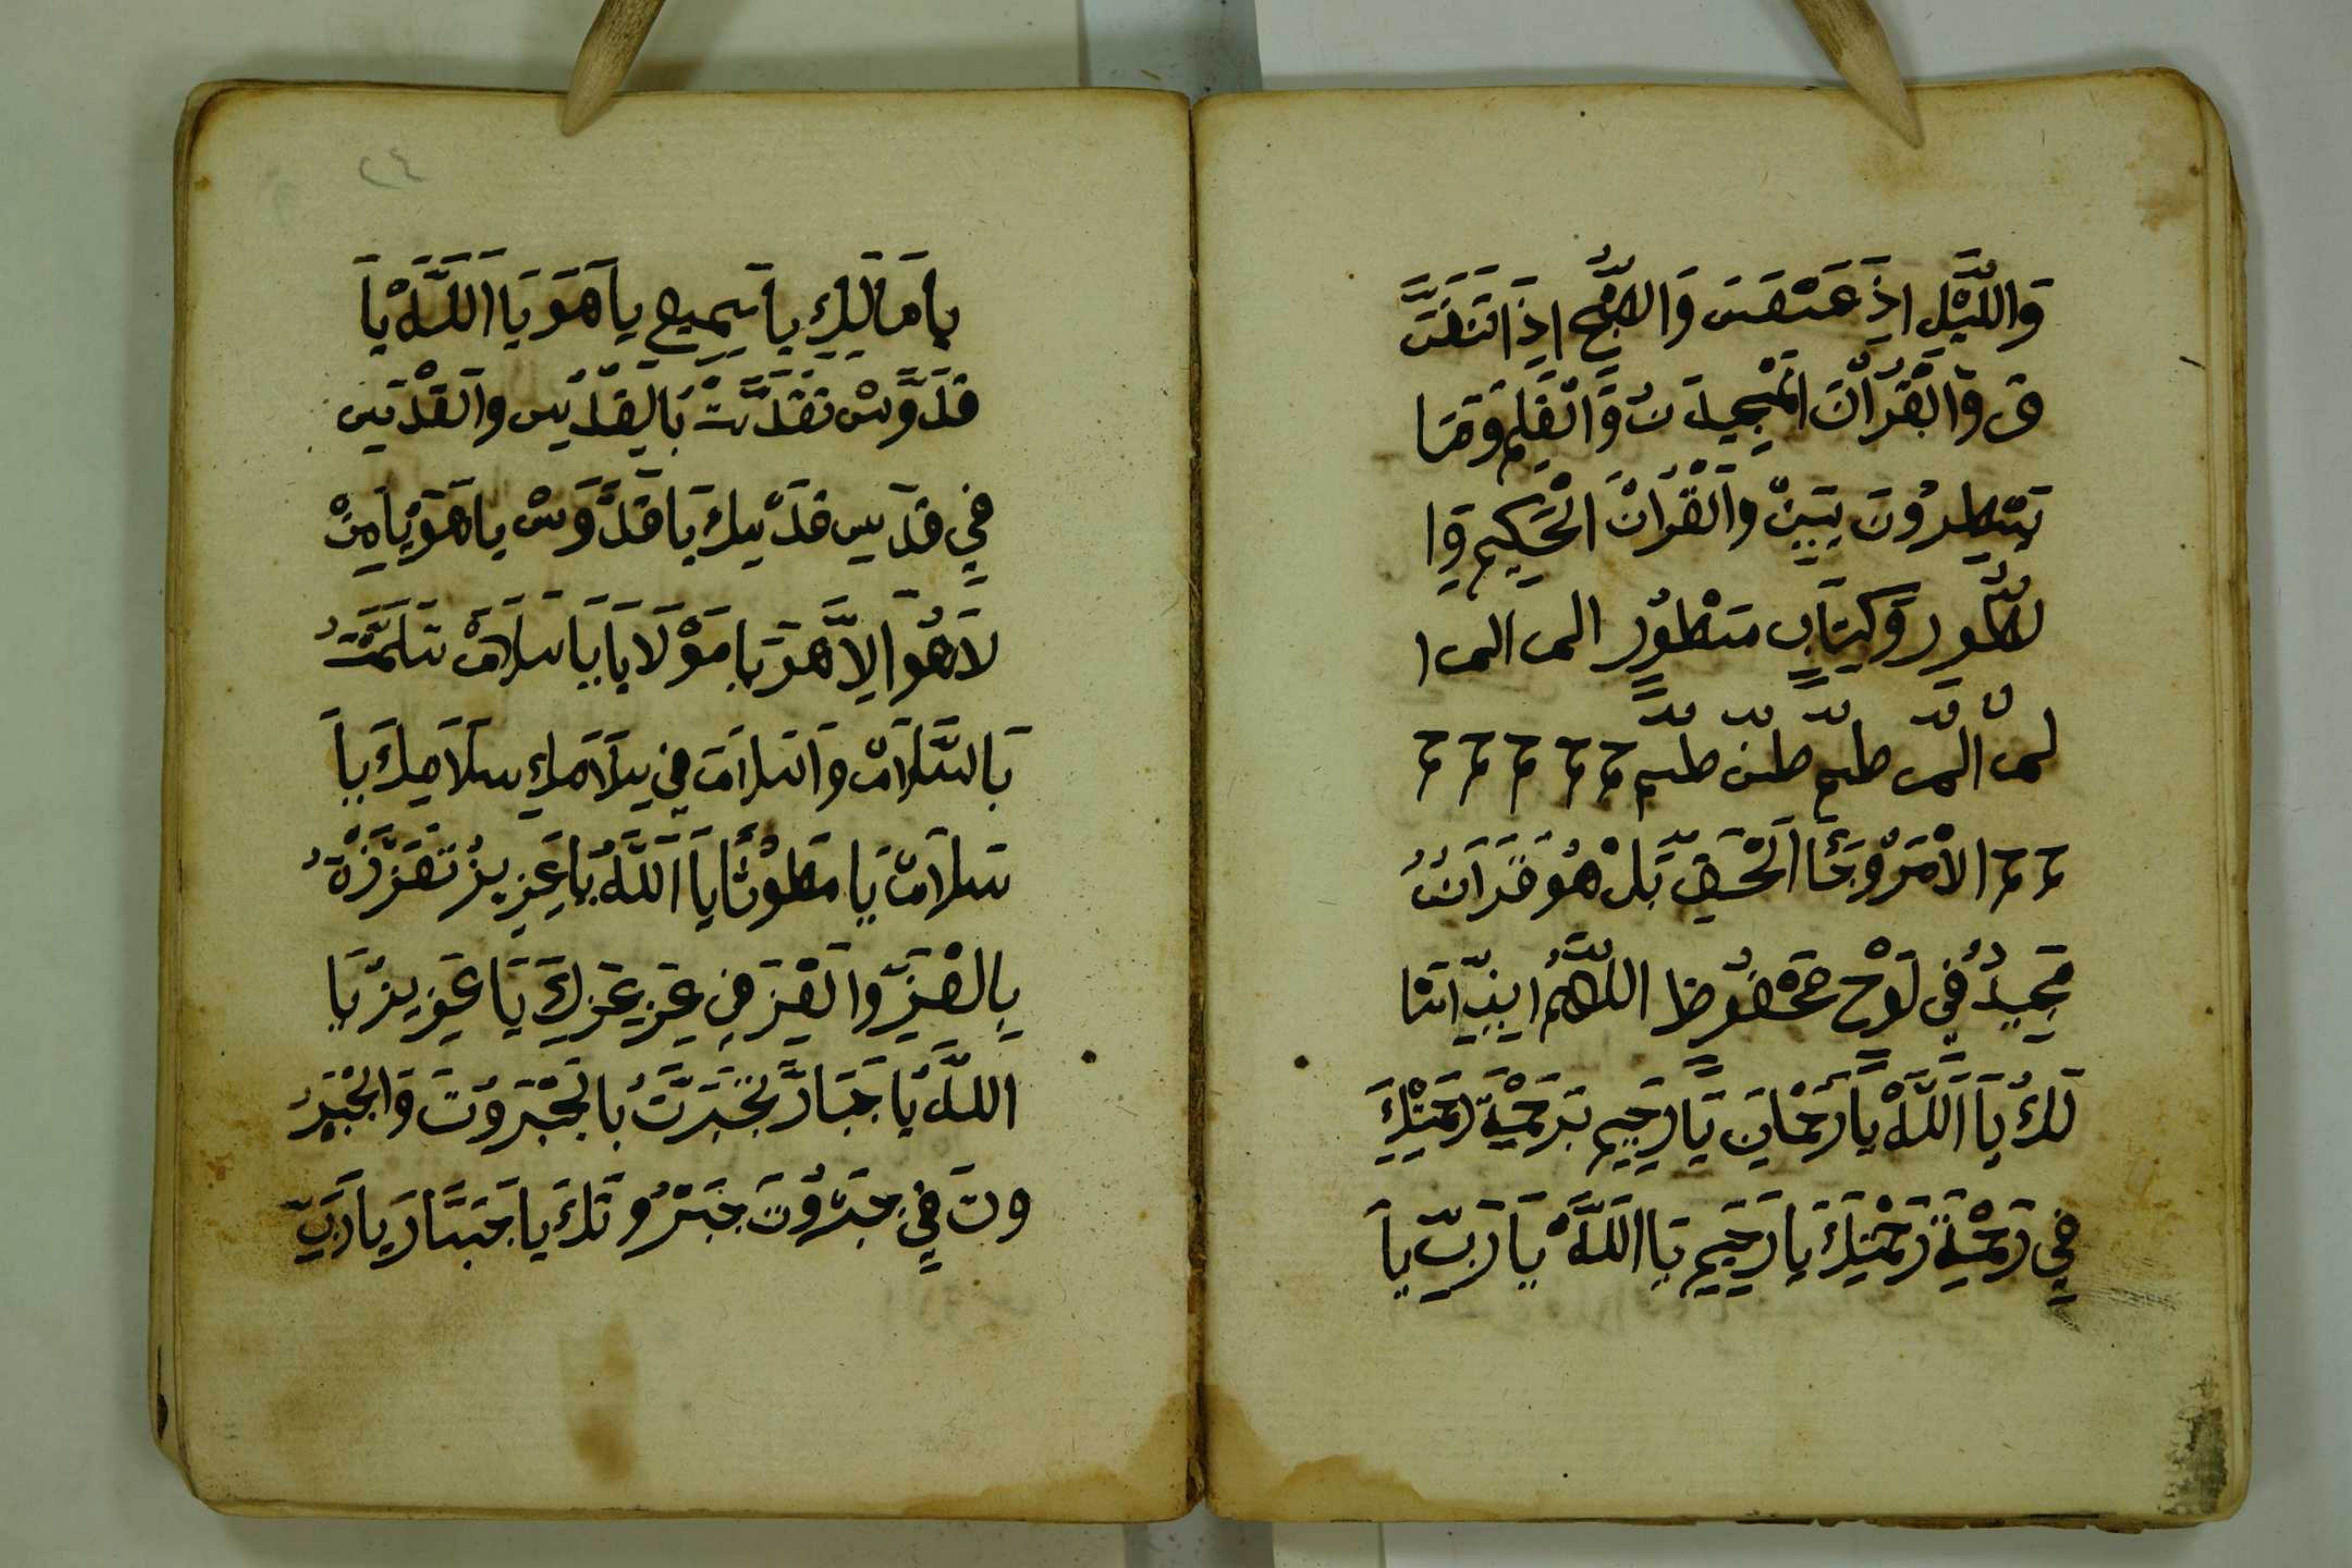 وَاللَّيْلِ اِذَ عَسْعَسَ وَالصُّبْحِ اِذَا تَنَفَّسَ
ق وَالْقُرْاٰنَ الْمَجِيدَ نُ وَالْقَلَمِ وَمَا
يَسْطِرُونَ يٰسِيْنْ وَالْقُرْاٰنَ الْحَكِيمِ وَا
لطُّورِ وَكِتَابٍ مَسْطُورٍ الم الم ا
لمن المر طسم طس طسم حم حم حم حم حم
حم حم الاْمَرُ وَجَا الْحَقِّ بَلْ هُوَ قُرَاَنُ
مَجِيدُ فِي لَوْحٍ مَحْفُوظٍ اللهُمَّ اِنِّي اسَا
لَكُ يَا اَللَّهْ يَا رَحْمَانِ يَا رَحِيمِ بَرَحْمَةِ رَحْمَتِكَ
فِي رَحْمَةِ رَحْمَتِكَ يَا رَحِيمِ يَا اللَّهْ يَا رَبِّ يَا
٢٤
يَا مَالِكِ يَا سَمِيعِ يَا هَوَ يَا اَللَّهْ يَا
قَدُّوَسْ تَقَدَّسْتْ بَالِقَدْيَسِ وَالَقْدَيَس
فِي قدَيسِ قَدْيسِكَ يَا قَدُّوَسْ يَا هَوَ يَا مِنْ
لَا هُوَ اِلَّا هَوَ يَا مَوْلَايَا يَا سَلَامْ سَلَمَّتُ
بَالسَّلَامْ وَالسَلامَ فِي سِلَامَكِ سَلَامِكَ يَا
سَلاَمْ يَا مَطوْثًا يَا اَللَّهُ يَا عَزِيزُ تَعَزَّزْةُ
بِالعَزِّ وَالْعِزَ فِي عَزِ عَزِكَ يَا عَزِيزْ يَا
اللَّهُ يَا جَبَارَّ تَجَبَرَتَّ بالَجْبَروُتَ وَالجْبَرُ
وتَ فِي جبَرُوُتَ جَبَرْوُتَكَ يَا جَبَّارَ يَا رَبِّ